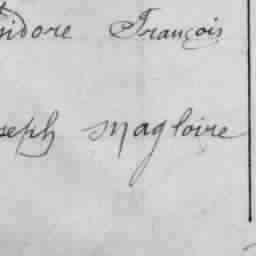 sidore François
seph Magloire